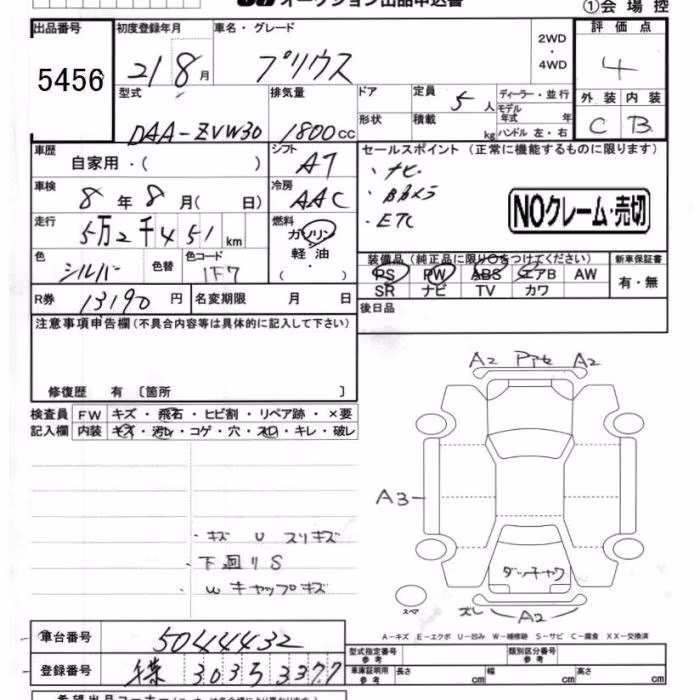 オークション出品申込書
①会場控
出品番号 初度登録年月 車名・グレード 2WD 評価点
5456 21 8月 プリウス ・ 4
4WD
型式 排気量 ドア 定員 5人 ディーラー・並行 外装 内装
DAA-ZVW30 1800cc 形状 積載 kg モデル年式 年 C B
ハンドル 左・右
車歴 自家用・( ) シフト AT セールスポイント (正常に機能するものに限ります)
・ナビ
車検 8年8月( 日) 冷房 AAC
・ETC
NOクレーム・売切
走行 5万2千451km 燃料 ガソリン
軽油
・( )
色 シルバー 色替 色コード 1F7
装備品(純正品に限り○をつけてください) 新車保証書
PS PW ABS エアB AW 有・無
SR ナビ TV カワ
R券 13190円 名変期限 月 日 後日品
注意事項申告欄(不具合内容等は具体的に記入して下さい)
修復歴 有 〔箇所 〕
検査員 FW キズ・飛石・ヒビ割・リペア跡・×要
記入欄 内装 キズ・汚レ・コゲ・穴・スレ・キレ・破レ
A2 A2
A3
・キズ U スリキズ
・下廻りS
W キャップキズ
ダッチャワ
スペア
ズレ A2
A-キズ E-エクボ U-凹み W-補修跡 S-サビ C-腐食 XX-交換済
車台番号 5044432 型式指定番号 参考 類別区分番号 参考
登録番号 千葉 303 ち 3377 車庫証明用 参考 長さ cm 幅 cm 高さ cm
希望出品コーナー